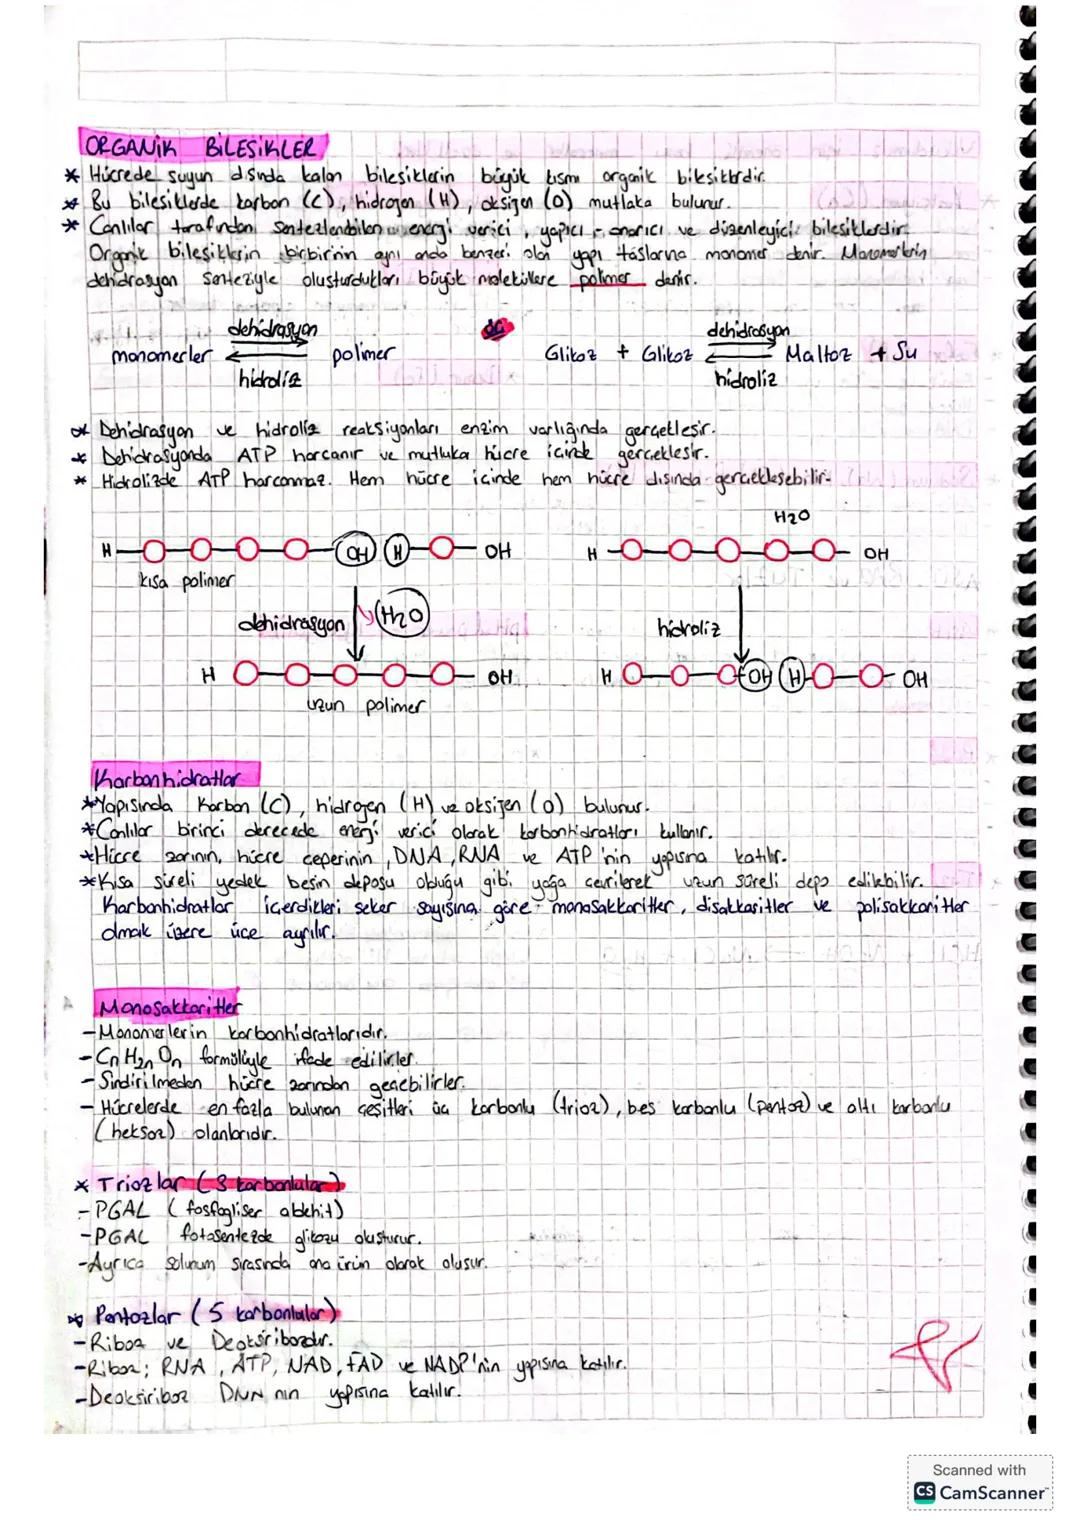 ORGANİK BİLEŞİKLER
* Hücrede suyun dışında kalan bileşiklerin büyük kısmı organik bileşiklerdir.
* Bu bileşiklerde karbon (C), hidrojen (H), oksijen (O) mutlaka bulunur.
* Canlılar tarafından sentezlenebilen enerji verici, yapıcı - onarıcı ve düzenleyici bileşiklerdir.
Organik bileşiklerin birbirinin aynı anda benzeri olan yapı taşlarına monomer denir. Monomerlerin
dehidrasyon senteziyle oluşturdukları büyük moleküllere polimer denir.
dehidrasyon
monomerler polimer
hidroliz
dehidrasyon
Glikoz + Glikoz Maltoz + Su
hidroliz
* Dehidrasyon ve hidroliz reaksiyonları enzim varlığında gerçekleşir.
* Dehidrasyonda ATP harcanır ve mutluka hücre içinde gerçekleşir.
* Hidrolizde ATP harcanmaz. Hem hücre içinde hem hücre dışında gerçekleşebilir.
H OH H OH
kısa polimer
dehidrasyon H2O
H OH
uzun polimer
H2O
H OH
hidroliz
H OH H OH
Karbonhidratlar
* Yapısında Karbon (C), hidrojen (H) ve oksijen (O) bulunur.
* Canlılar birinci derecede enerji verici olarak karbonhidratları kullanır.
* Hücre zarının, hücre çeperinin, DNA, RNA ve ATP'nin yapısına katılır.
* Kısa süreli yedek besin deposu olduğu gibi yağa çevrilerek uzun süreli depo edilebilir.
Karbonhidratlar içerdikleri şeker sayısına göre monosakkaritler, disakkaritler ve polisakkaritler
olmak üzere üçe ayrılır.
Monosakkaritler
- Monomerlerin karbonhidratlarıdır.
- CnH2nOn formülüyle ifade edilirler.
- Sindirilmeden hücre zarından geçebilirler.
- Hücrelerde en fazla bulunan çeşitleri üç karbonlu (trioz), beş karbonlu (pentoz) ve altı karbonlu
(heksoz) olanlarıdır.
* Triozlar (3 karbonlular)
- PGAL (fosfogliser aldehit)
- PGAL fotosentezde glikozu oluşturur.
- Ayrıca solunum sırasında ana ürün olarak oluşur.
* Pentozlar (5 karbonlular)
- Riboz ve Deoksiribozdur.
- Riboz; RNA, ATP, NAD, FAD ve NADP'nin yapısına katılır.
- Deoksiriboz DNN nın yapısına katılır.
Scanned with
CS CamScanner